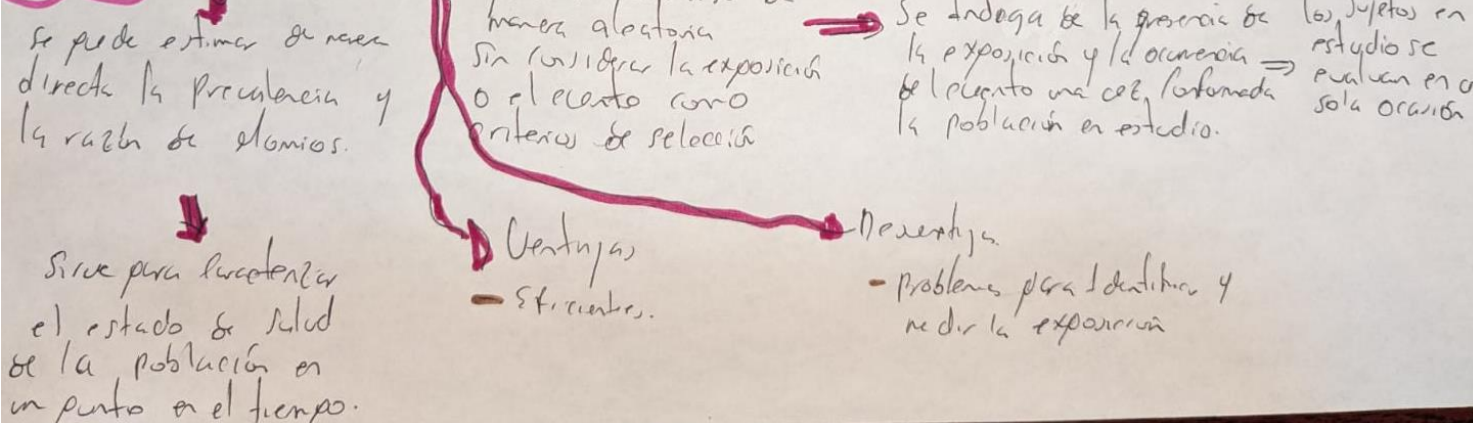 Se puede estimar de manera
directa la Prevalencia y
la razón de momios.
Sirve para Caracterizar
el estado de salud
de la población en
un punto en el tiempo.
manera aleatoria
Sin considerar la exposición
o el evento como
criterios de selección
Ventajas
- Eficientes.
Se indaga de la presencia de
la exposición y la ocurrencia
del evento una vez conformada
la población en estudio.
los sujetos en
estudio se
evaluan en
sola ocasión
Desventaja
- Problemas para Identificar y
medir la exposición